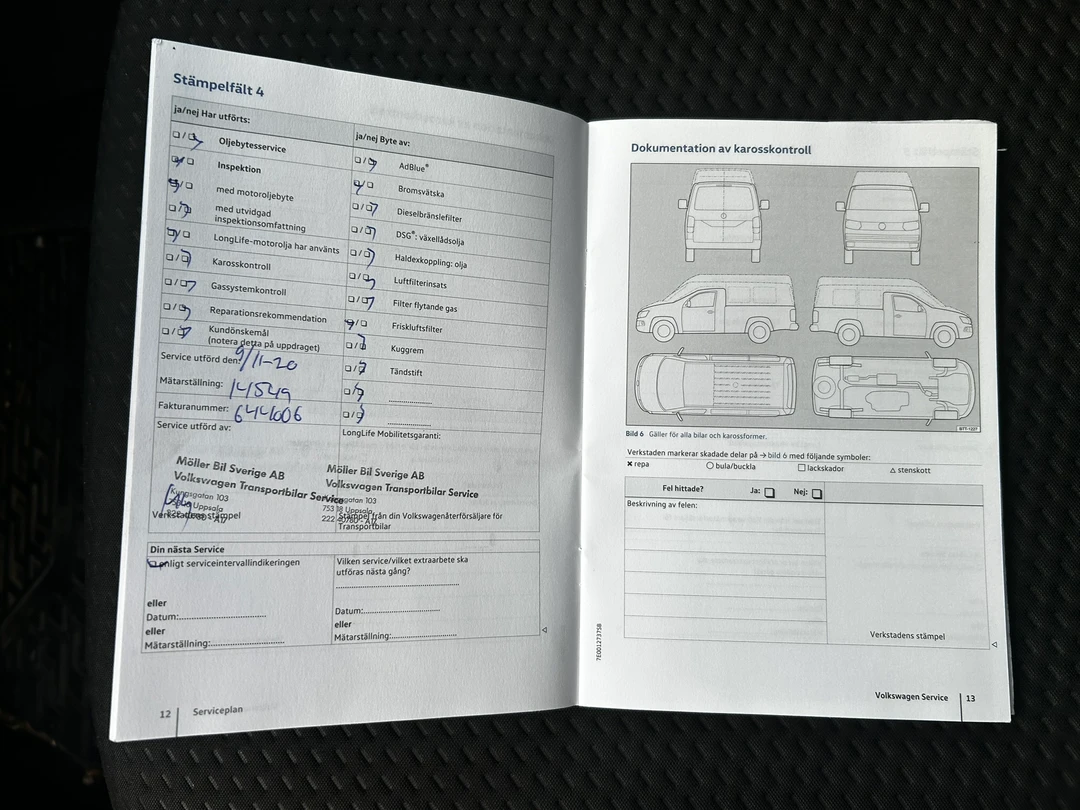 Stämpelfält 4
ja/nej Har utförts:
Oljebytesservice
Inspektion
med motoroljebyte
med utvidgad
inspektionsomfattning
LongLife-motorolja har använts
Karosskontroll
Gassystemkontroll
Reparationsrekommendation
Kundönskemål
(notera detta på uppdraget)
ja/nej Byte av:
AdBlue®
Bromsvätska
Dieselbränslefilter
DSG®: växellådsolja
Haldexkoppling: olja
Luftfilterinsats
Filter flytande gas
Friskluftsfilter
Kuggrem
Tändstift
Service utförd den: 9/11-20
Mätarställning: 14549
Fakturanummer: 644006
Service utförd av:
Möller Bil Sverige AB
Volkswagen Transportbilar Service
Kungsgatan 103
Uppsala
Verkstadens stämpel
LongLife Mobilitetsgaranti:
Möller Bil Sverige AB
Volkswagen Transportbilar Service
Kungsgatan 103
753 18 Uppsala
Stämpel från din Volkswagenåterförsäljare för
Transportbilar
Din nästa Service
enligt serviceintervallindikeringen
eller
Datum:
eller
Mätarställning:
Vilken service/vilket extraarbete ska
utföras nästa gång?
Datum:
eller
Mätarställning:
12 Serviceplan
Dokumentation av karosskontroll
B7T-1227
Bild 6 Gäller för alla bilar och karossformer.
Verkstaden markerar skadade delar på → bild 6 med följande symboler:
× repa ○ bula/buckla □ lackskador △ stenskott
Fel hittade? Ja: Nej:
Beskrivning av felen:
Verkstadens stämpel
7E0012737SB
Volkswagen Service 13